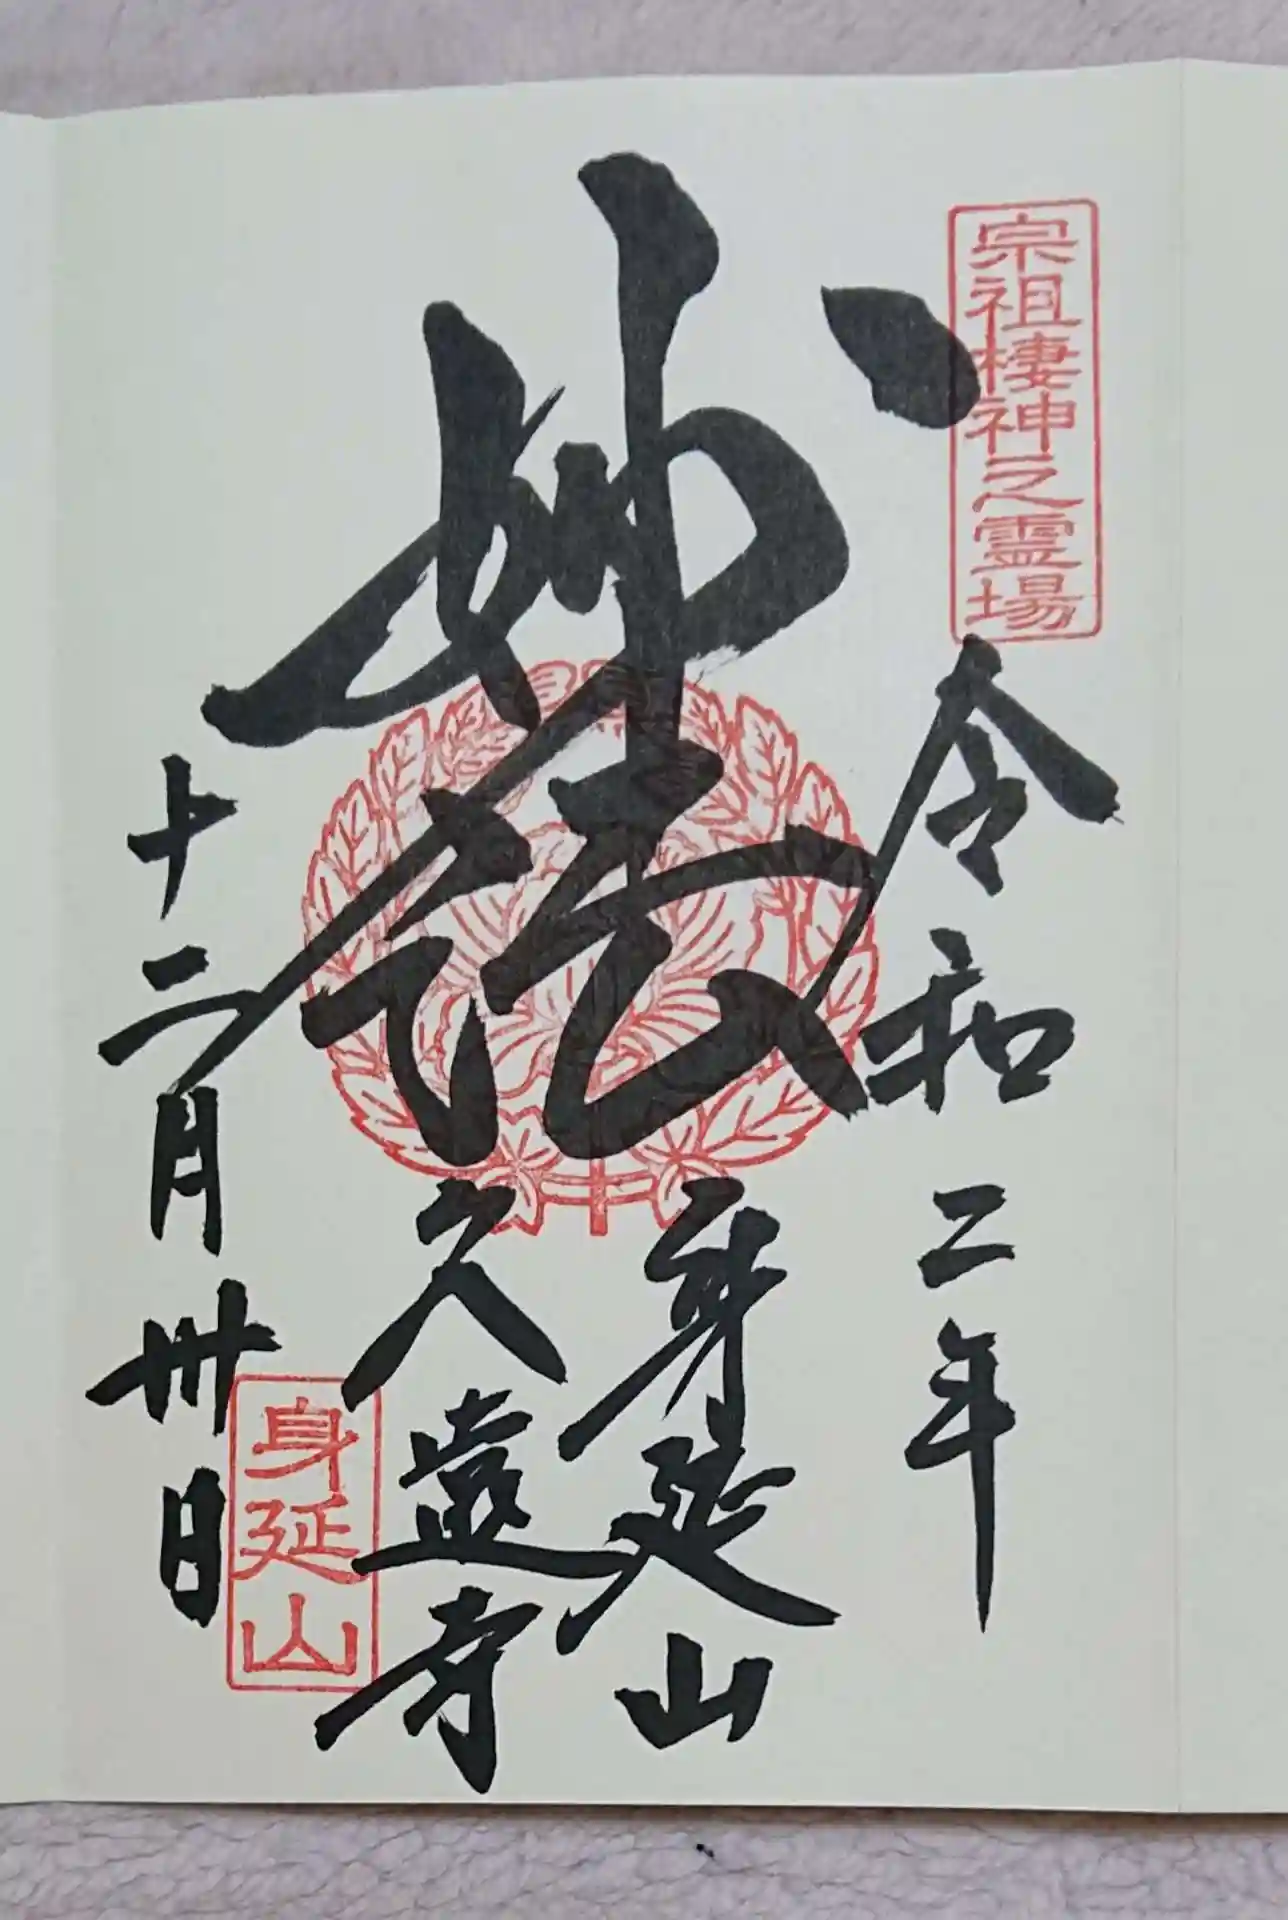 宗祖棲神之霊場
令和二年
妙法
身延山
久遠寺
身延山
十二月卅日